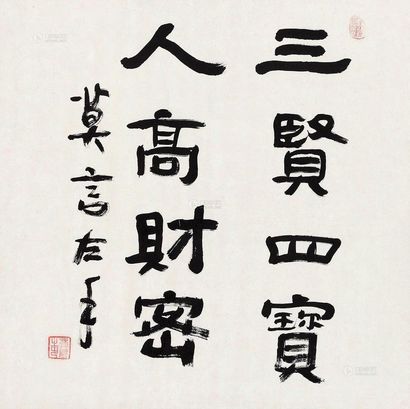 三賢四寶
人高財密
莫言左手